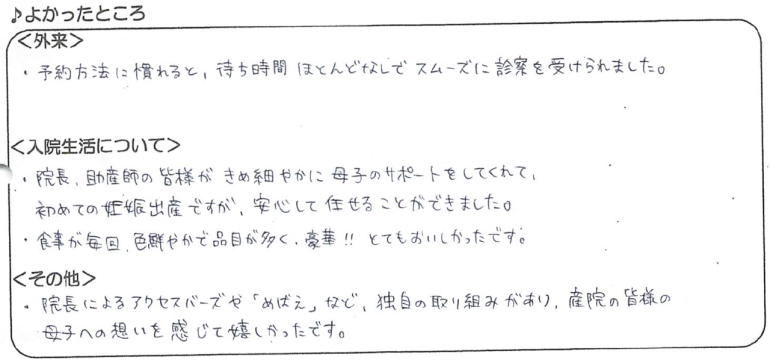 ♪よかったところ
＜外来＞
・予約方法に慣れると、待ち時間ほとんどなしでスムーズに診察を受けられました。
＜入院生活について＞
・院長、助産師の皆様がきめ細やかに母子のサポートをしてくれて、
初めての妊娠出産ですが、安心して任せることができました。
・食事が毎回、色鮮やかで品目が多く、豪華!! とてもおいしかったです。
＜その他＞
・院長によるアクセスバーズや「めばえ」など、独自の取り組みがあり、産院の皆様の
母子への想いを感じて嬉しかったです。